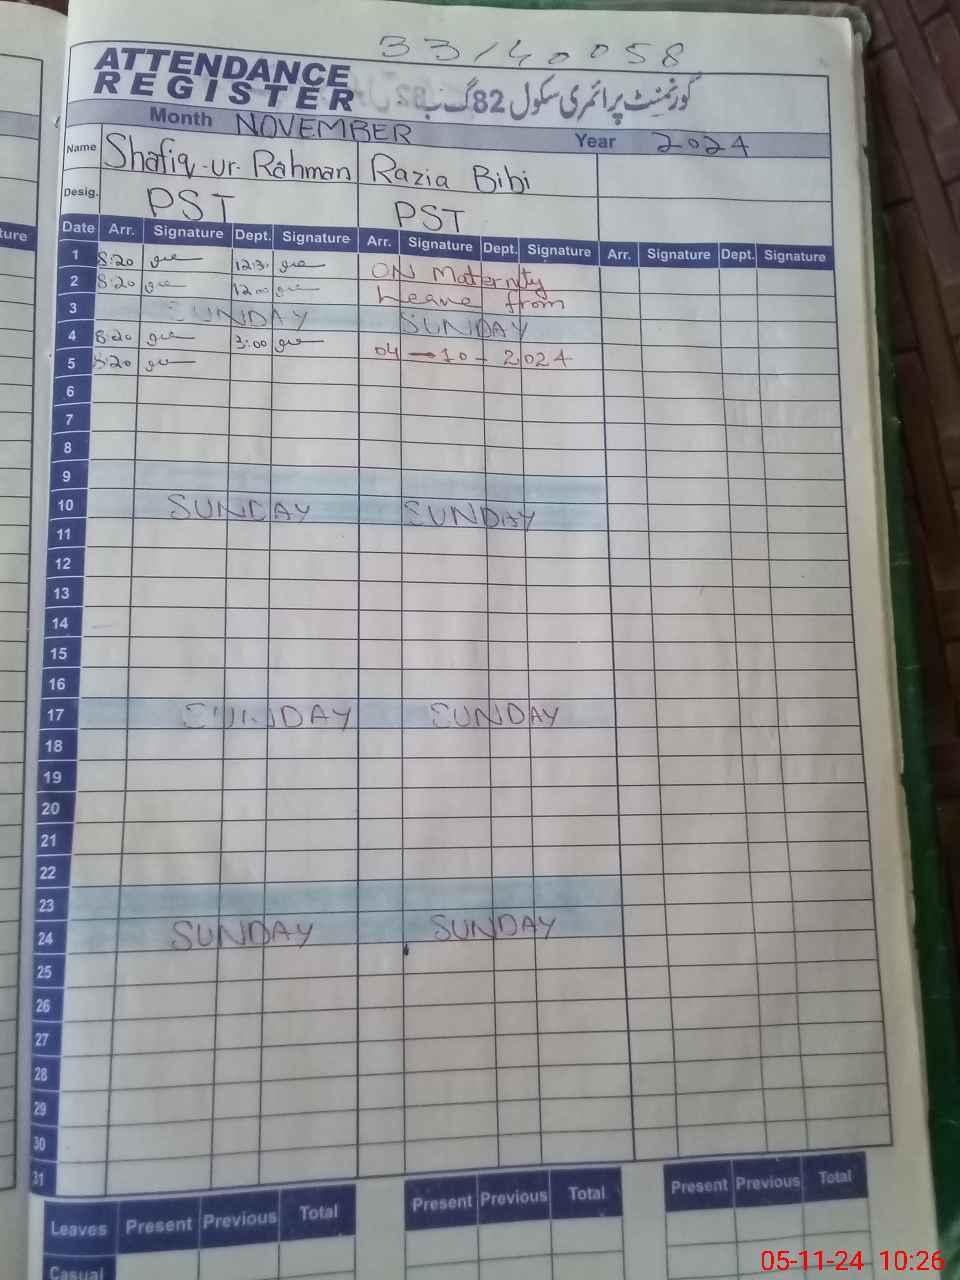 33140058
ATTENDANCE
REGISTER
گورنمنٹ پرائمری سکول 82گ ب
Month NOVEMBER Year 2024
Name Shafiq-ur-Rahman Razia Bibi
Desig. PST PST
Date Arr. Signature Dept. Signature Arr. Signature Dept. Signature Arr. Signature Dept. Signature
1 8:20 12:3 ON Maternity
2 8:20 12:00 Leave from
3 SUNDAY SUNDAY
4 8:20 3:00
5 8:20 04 - 10 - 2024
6
7
8
9
10 SUNDAY SUNDAY
11
12
13
14
15
16
17 SUNDAY SUNDAY
18
19
20
21
22
23
24 SUNDAY SUNDAY
25
26
27
28
29
30
31
Leaves Present Previous Total Present Previous Total Present Previous Total
Casual
05-11-24 10:26